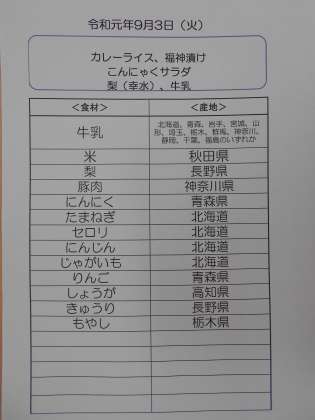 令和元年9月3日（火）
カレーライス、福神漬け
こんにゃくサラダ
梨（幸水）、牛乳
＜食材＞ ＜産地＞
牛乳 北海道、青森、岩手、宮城、山
形、埼玉、栃木、群馬、神奈川、
静岡、千葉、福島のいずれか
米 秋田県
梨 長野県
豚肉 神奈川県
にんにく 青森県
たまねぎ 北海道
セロリ 北海道
にんじん 北海道
じゃがいも 北海道
りんご 青森県
しょうが 高知県
きゅうり 長野県
もやし 栃木県